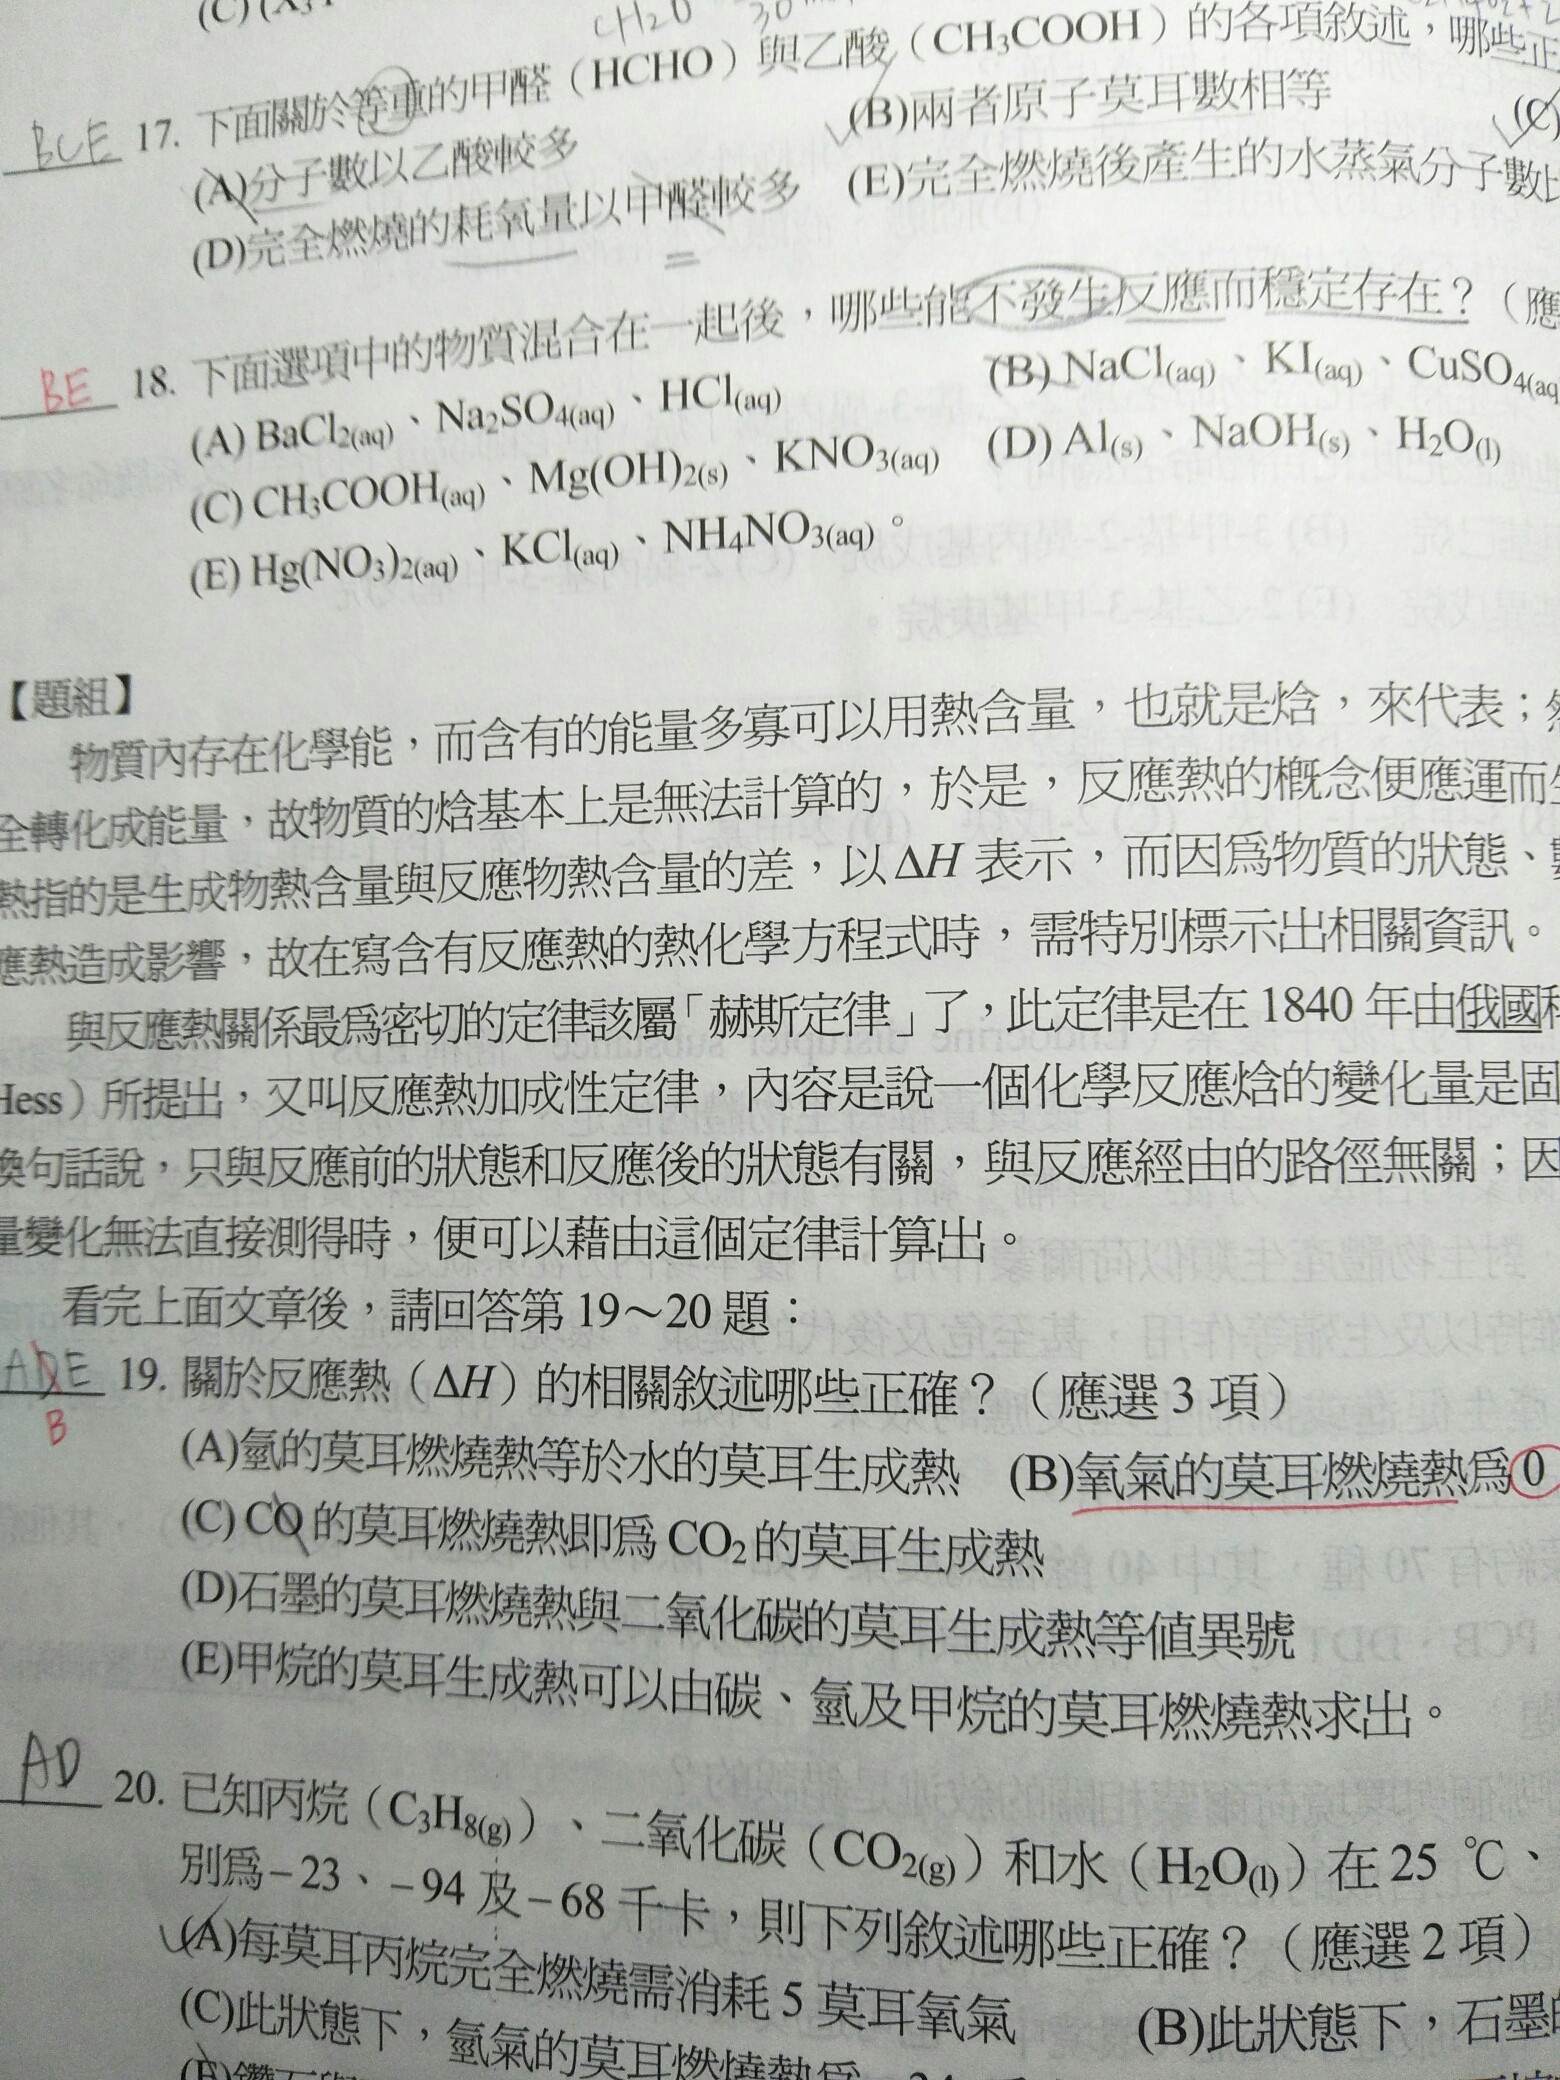 CH2O
BCE 17. 下面關於等重的甲醛（HCHO）與乙酸（CH3COOH）的各項敘述，哪些正
(A)分子數以乙酸較多 (B)兩者原子莫耳數相等 (C)
(D)完全燃燒的耗氧量以甲醛較多 (E)完全燃燒後產生的水蒸氣分子數比
BE 18. 下面選項中的物質混合在一起後，哪些能不發生反應而穩定存在？（應
(A) BaCl2(aq)、Na2SO4(aq)、HCl(aq) (B) NaCl(aq)、KI(aq)、CuSO4(aq
(C) CH3COOH(aq)、Mg(OH)2(s)、KNO3(aq) (D) Al(s)、NaOH(s)、H2O(l)
(E) Hg(NO3)2(aq)、KCl(aq)、NH4NO3(aq)。
【題組】
物質內存在化學能，而含有的能量多寡可以用熱含量，也就是焓，來代表；
全轉化成能量，故物質的焓基本上是無法計算的，於是，反應熱的概念便應運而生
熱指的是生成物熱含量與反應物熱含量的差，以ΔH 表示，而因爲物質的狀態、
應熱造成影響，故在寫含有反應熱的熱化學方程式時，需特別標示出相關資訊。
與反應熱關係最爲密切的定律該屬「赫斯定律」了，此定律是在 1840 年由俄國科
Hess）所提出，又叫反應熱加成性定律，內容是說一個化學反應焓的變化量是固
換句話說，只與反應前的狀態和反應後的狀態有關，與反應經由的路徑無關；因
量變化無法直接測得時，便可以藉由這個定律計算出。
看完上面文章後，請回答第 19～20 題：
ADE 19. 關於反應熱（ΔH）的相關敘述哪些正確？（應選 3 項）
B
(A)氫的莫耳燃燒熱等於水的莫耳生成熱 (B)氧氣的莫耳燃燒熱爲 0
(C) CO 的莫耳燃燒熱即爲 CO2 的莫耳生成熱
(D)石墨的莫耳燃燒熱與二氧化碳的莫耳生成熱等值異號
(E)甲烷的莫耳生成熱可以由碳、氫及甲烷的莫耳燃燒熱求出。
AD 20. 已知丙烷（C3H8(g)）、二氧化碳（CO2(g)）和水（H2O(l)）在 25 ℃、
別爲－23、－94 及－68 千卡，則下列敘述哪些正確？（應選 2 項）
(A)每莫耳丙烷完全燃燒需消耗 5 莫耳氧氣 (B)此狀態下，石墨的
(C)此狀態下，氫氣的莫耳燃燒熱爲